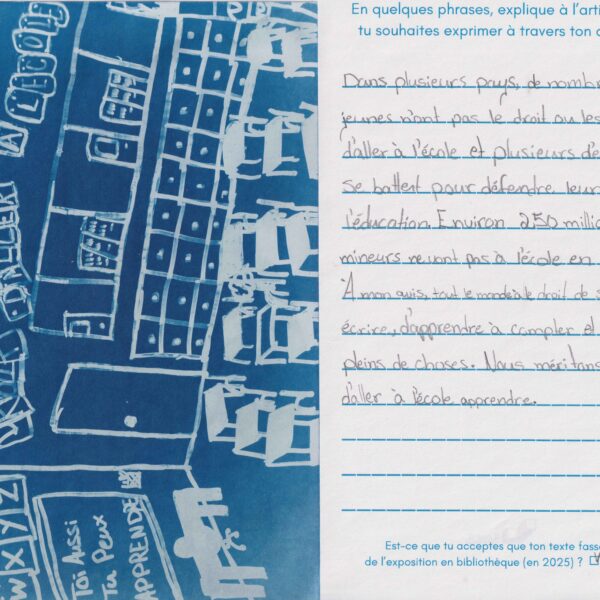 À L'ÉCOLE
D'ALLER
DROIT
W X Y Z
Toi Aussi
Tu Peux
APPRENDRE
En quelques phrases, explique à l'arti
tu souhaites exprimer à travers ton
Dans plusieurs pays, de nomb
jeunes n'ont pas le droit ou les
d'aller à l'école et plusieurs d'e
se battent pour défendre leur
l'éducation. Environ 250 milli
mineurs ne vont pas à l'école en
À mon avis, tout le monde à le droit de
écrire, d'apprendre à compter et
pleins de choses. Nous méritons
d'aller à l'école apprendre.
Est-ce que tu acceptes que ton texte fass
de l'exposition en bibliothèque (en 2025) ?